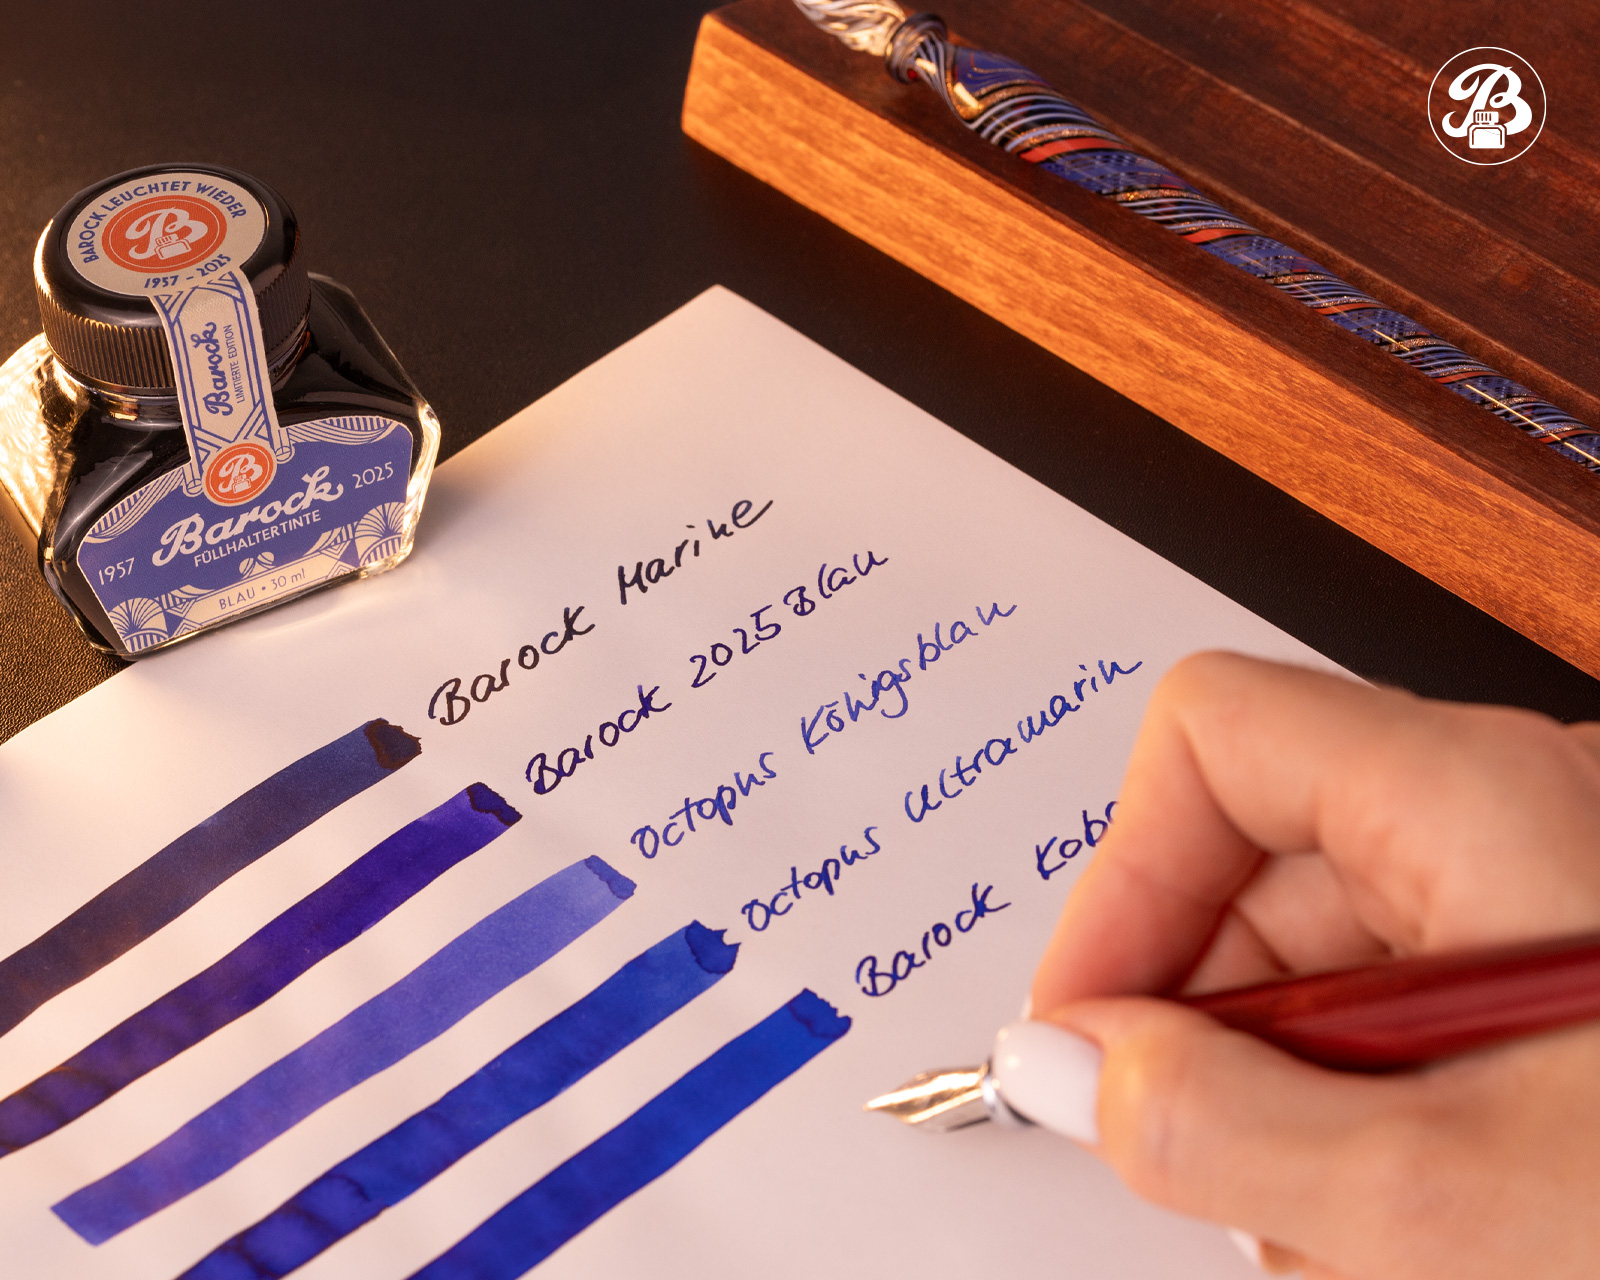 B
BAROCK LEUCHTET WIEDER
B
1957 - 2025
Barock
LIMITIERTE EDITION
B
Barock
2025
FÜLLHALTERTINTE
1957
BLAU • 30 ml
Barock Marine
Barock 2025 Blau
Octopus Königsblau
Octopus Ultramarin
Barock